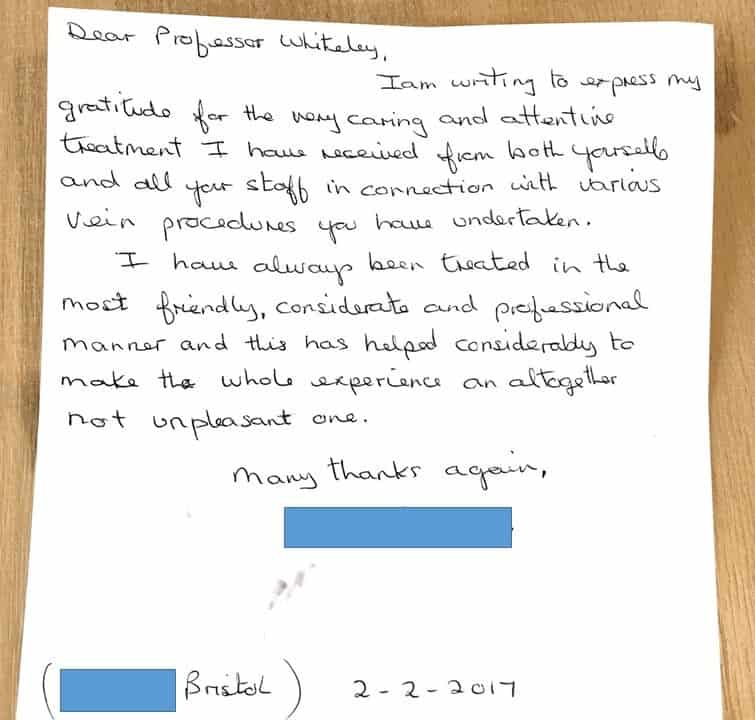 Dear Professor Whiteley,
I am writing to express my
gratitude for the very caring and attentive
treatment I have received from both yourself
and all your staff in connection with various
vein procedures you have undertaken.
I have always been treated in the
most friendly, considerate and professional
manner and this has helped considerably to
make the whole experience an altogether
not unpleasant one.
Many thanks again,
(Bristol) 2-2-2017